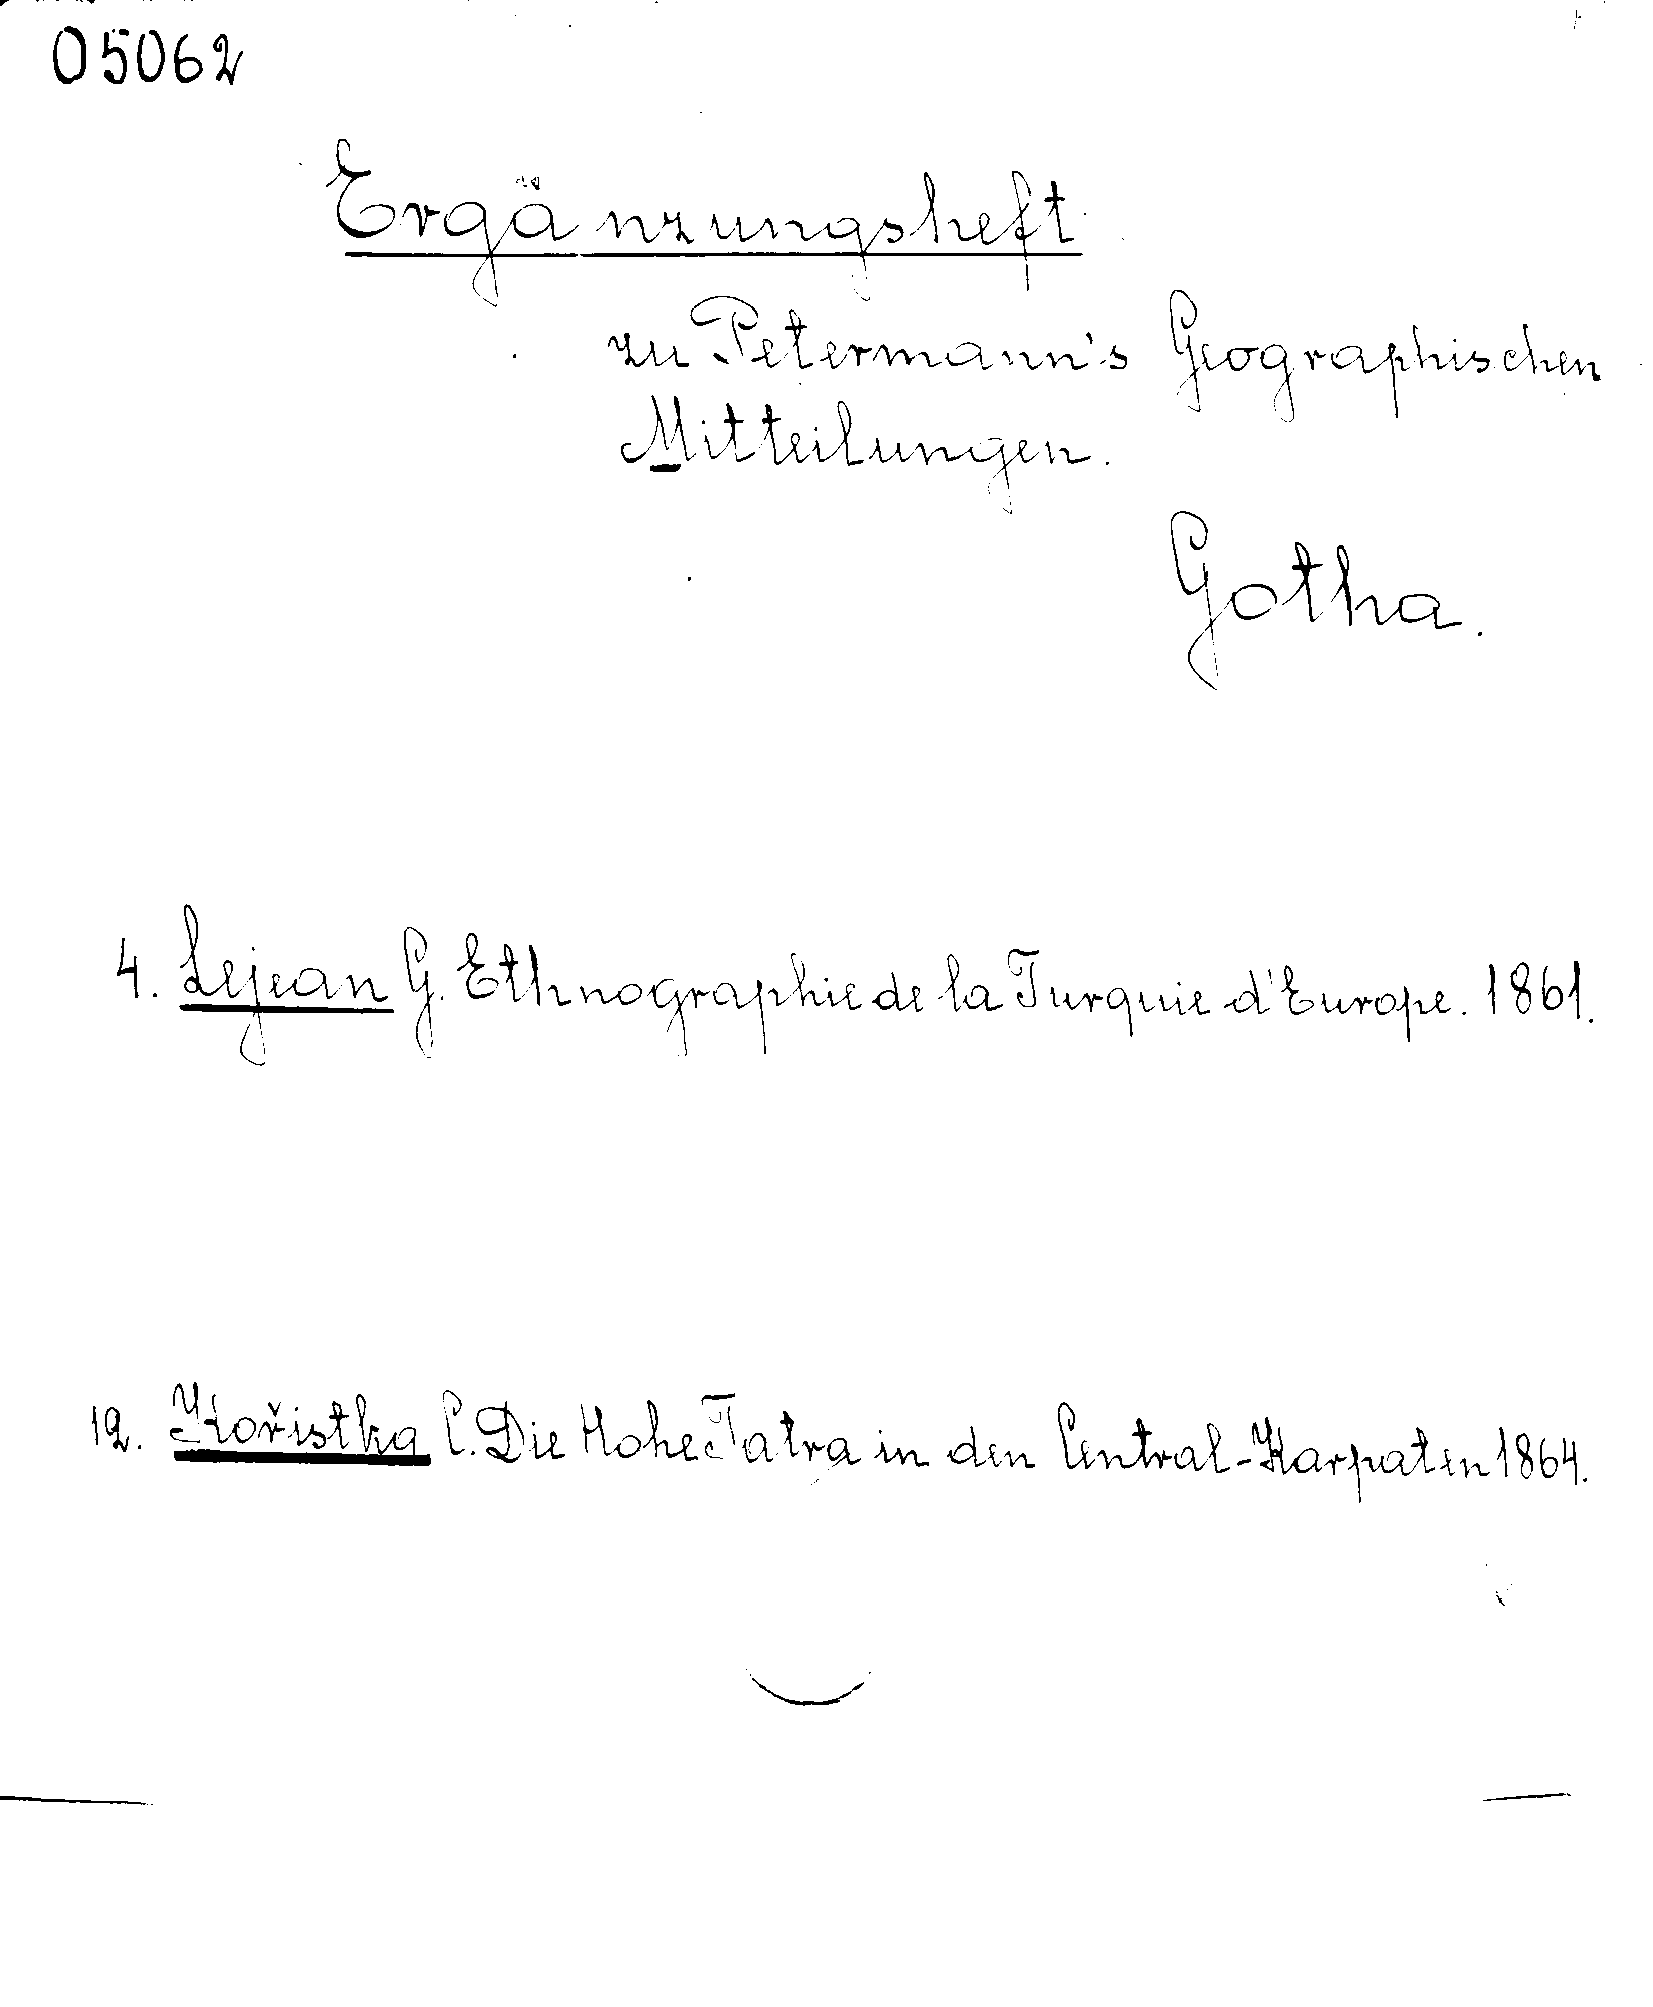 05062
Ergänzungsheft
zu Petermann's Geographischen
Mitteilungen.
Gotha.
4. Lejean G. Ethnographie de la Turquie d'Europe. 1861.
12. Kořistka C. Die Hohe Tatra in den Central-Karpaten 1864.